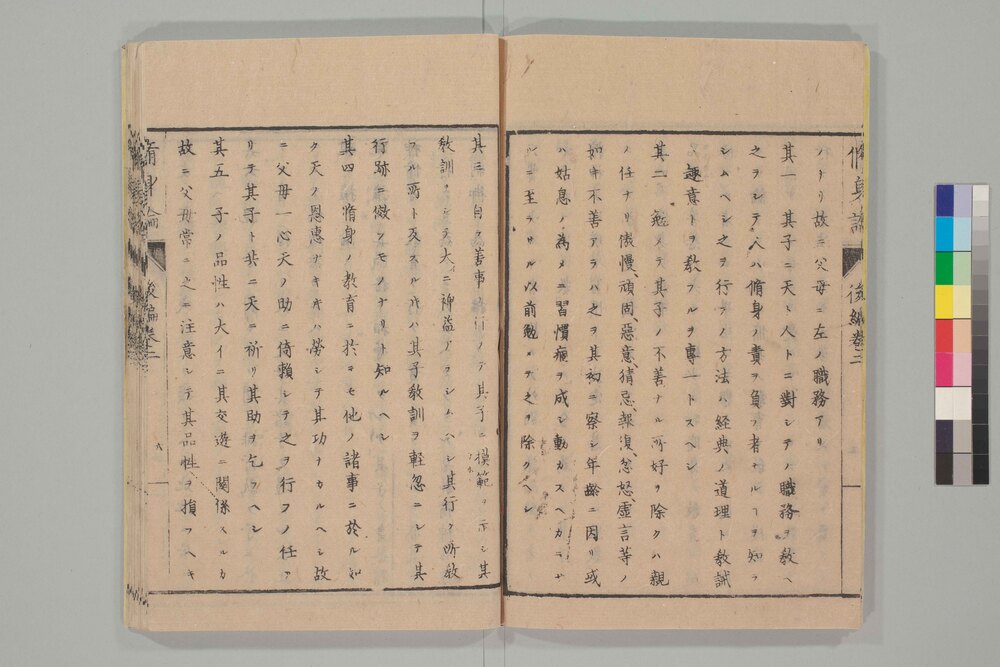 脩身論 後編巻二
ノトリ故ニ父母ニ左ノ職務アリ
其一 其子ニ天ト人トニ對シテノ職務ヲ教ヘ
之ヲシテ人ハ脩身ノ責ヲ負フ者ナルヿヲ知ラ
シムヘシ之ヲ行フノ方法ハ經典ノ道理ト教誡
ノ趣意トヲ教フルヲ專一トスヘシ
其二 勉メテ其子ノ不善ナル所好ヲ除クハ親
ノ任ナリ傲慢、頑固、惡意、猜忌、報復、忿怒、虛言等ノ
如キ不善アラハ之ヲ其初ニ察シ年齡ニ因リ或
ハ姑息ノ為メニ習慣痼ヲ成シ動カスヘカラサ
ルニ至ラサル以前勉メテ之ヲ除クヘシ
其三 自ラ善事ヲ行ノテ其子ニ模範ヲ示シ其
教訓ヲシテ大ニ裨益アラシムヘシ其行フ所教
フル所ト反スル時ハ其子教訓ヲ輕忽ニシテ其
行跡ニ倣フモノナリト知ルヘシ
其四 脩身ノ教育ニ於ヲモ他ノ諸事ニ於ル如
ク天ノ恩惠ナキキハ勞シテ其功ナカルヘシ故
ニ父母一心天ノ助ニ倚賴シテ之ヲ行フノ任ア
リテ其子ト共ニ天ニ祈リ其助ヲ乞フヘシ
其五 子ノ品性ハ大イニ其交遊ニ關係スルカ
故ニ父母常ニ之ニ注意シテ其品性ヲ損フヘキ
脩身論 後編巻二
六